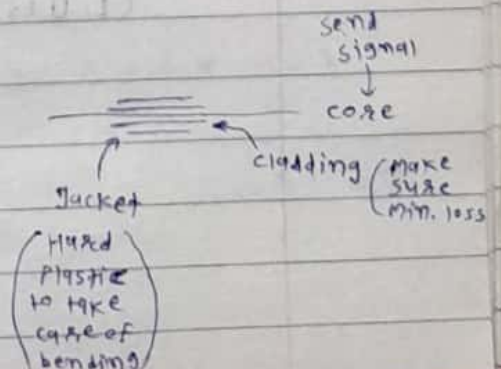 send
signal
core
cladding (make
sure
min. loss
Jacket
(Hard
Plastic
to take
care of
bending)